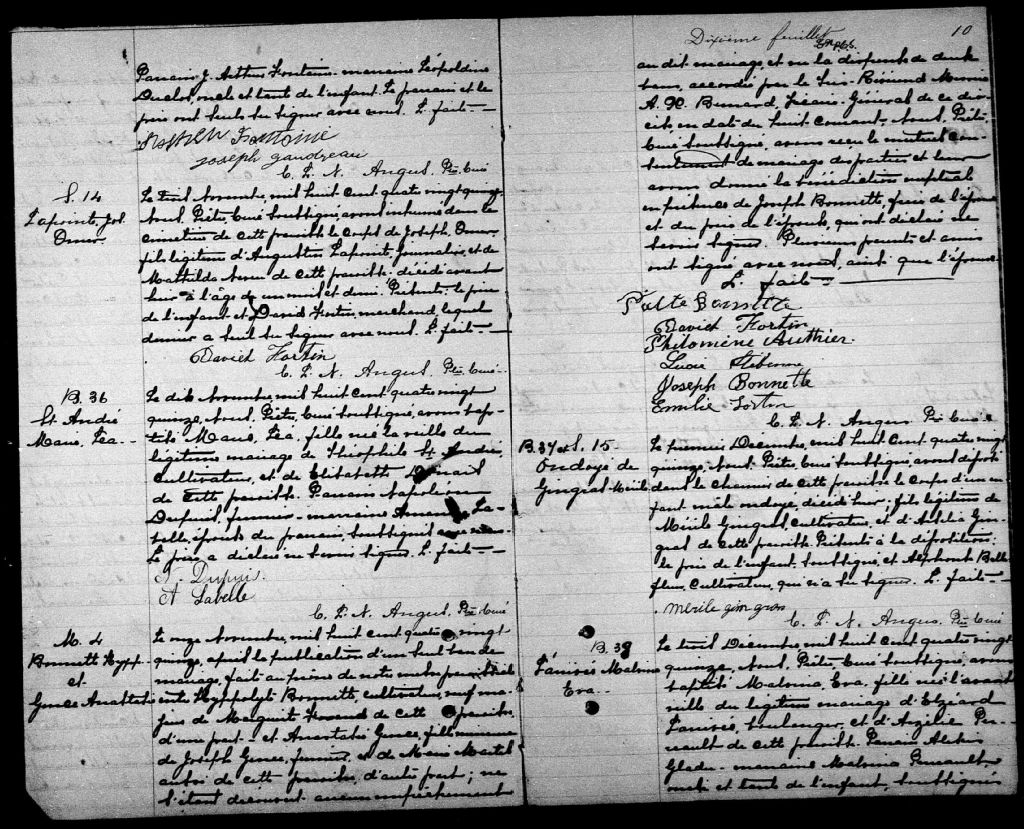 Parrain J. Arthur Fontaine, marraine Léopoldine
Duclos, oncle et tante de l'enfant. Le parrain et le
père ont seuls su signer avec nous. L. faite
Fontaine
Joseph gaudreau
C. L. N. Angus. Ptre Curé
S. 14
Lapointe, Jos.
Omer
Le trois Novembre, mil huit cent quatre vingt quinze,
Nous, Prêtre, Curé soussigné, avons inhumé dans le
cimetière de cette paroisse le corps de Joseph, Omer,
fils légitime d'Augustin Lapointe, Journalier, et de
Mathilda de cette paroisse décédé avant
hier à l'âge de un mois et demi. Présents: le père
de l'enfant et David Fortin, marchand, lequel
dernier a seul su signer avec nous. L. faite
David Fortin
C. L. N. Angus. Ptre Curé
B. 36
St. André
Marie, Léa
Le dix Novembre, mil huit cent quatre vingt
quinze, Nous, Prêtre, Curé soussigné, avons bap-
tisé Marie, Léa, fille née la veille du
légitime mariage de Théophile St. André,
Cultivateur, et de Elisabeth
de cette paroisse. Parrain Napoléon
Dupuis, fermier, marraine La-
belle, épouse du parrain, soussignés avec nous.
Le père a déclaré ne savoir signer. L. faite
N. Dupuis
A Labelle
C. L. N. Angus, Ptre Curé
M. 4
Bonnette Hypp.
et
Le onze Novembre, mil huit cent quatre vingt
quinze, après la publication d'un seul ban de
mariage, fait au prône de notre messe paroissiale
entre Hyppolyte Bonnette, cultivateur, veuf ma-
jeur de Marguerite de cette paroisse,
d'une part et Anastasie fille mineure
de Joseph fermier, et de Marie Martel
aussi de cette paroisse, d'autre part; ne
s'étant découvert aucun empêchement
Dixième feuillet
10
au dit mariage et vu la dispense de deux
bans, accordée par le Très Révérend Messire
A. X. Bernard, Vicaire Général de ce dio-
cèse, en date du huit courant, Nous, Prêtre,
Curé soussigné, avons reçu le mutuel con-
sentement de mariage des parties et leur
avons donné la bénédiction nuptiale
en présence de Joseph Bonnette, frère de l'époux
et du père de l'épouse, qui ont déclaré ne
savoir signer. Plusieurs parents et amis
ont signé avec nous, ainsi que l'époux.
L. faite
Bonnette
David Fortin
Philomène Authier.
Lucie
Joseph Bonnette
Emilie Fortin
C. L. N. Angus Ptre Curé
B. 37 et S. 15
Ondoyé de
Gingras Mérile
Le premier Décembre, mil huit cent quatre vingt
quinze, Nous, Prêtre, Curé soussigné, avons déposé
dans le charnier de cette paroisse le corps d'un en-
fant mâle ondoyé, décédé hier; fils légitime de
Mérile Gingras, Cultivateur, et d'Adélia Gin-
gras de cette paroisse. Présents à la déposition:
le père de l'enfant, soussigné, et Alphonse Belle-
fleur, Cultivateur, qui n'a su signer. L. faite
mérile gingras
C. L. N. Angus. Ptre Curé
B. 38
Malvina
Eva
Le trois Décembre, mil huit cent quatre vingt
quinze, Nous, Prêtre, Curé soussigné, avons
baptisé Malvina, Eva, fille née l'avant
veille du légitime mariage d'Elzéard
boulanger, et d'Azilie Per-
reault de cette paroisse. Parrain
marraine Malvina Perreault,
oncle et tante de l'enfant, soussignés